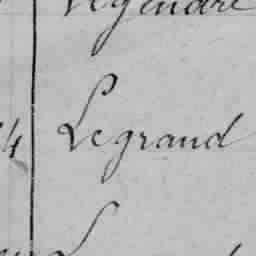 Legendre
4 Legrand